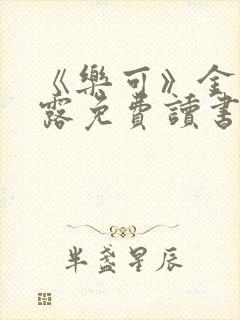 《樂可》金
露免費讀書
半盞星辰